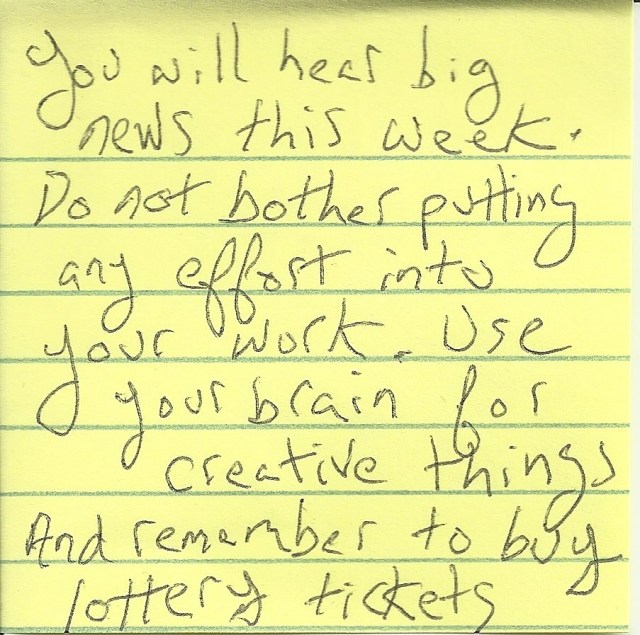 You will hear big
news this week.
Do not bother putting
any effort into
your work. Use
your brain for
creative things
And remember to buy
lottery tickets